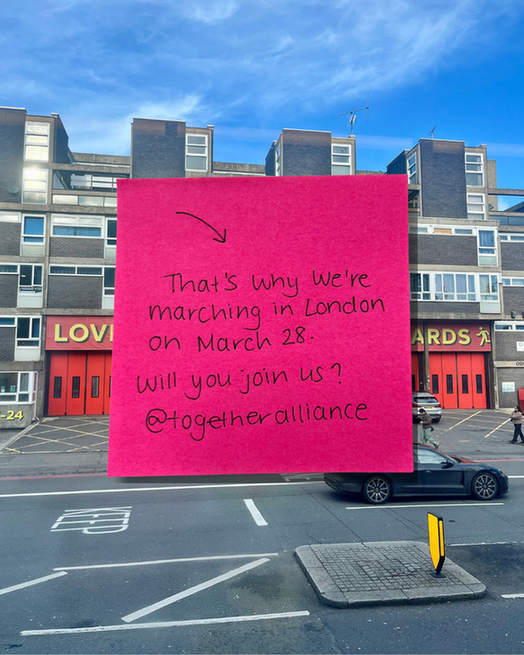 That's why we're
marching in London
on March 28.
Will you join us?
@togetheralliance
LOV
ARDS
-24
KEEP